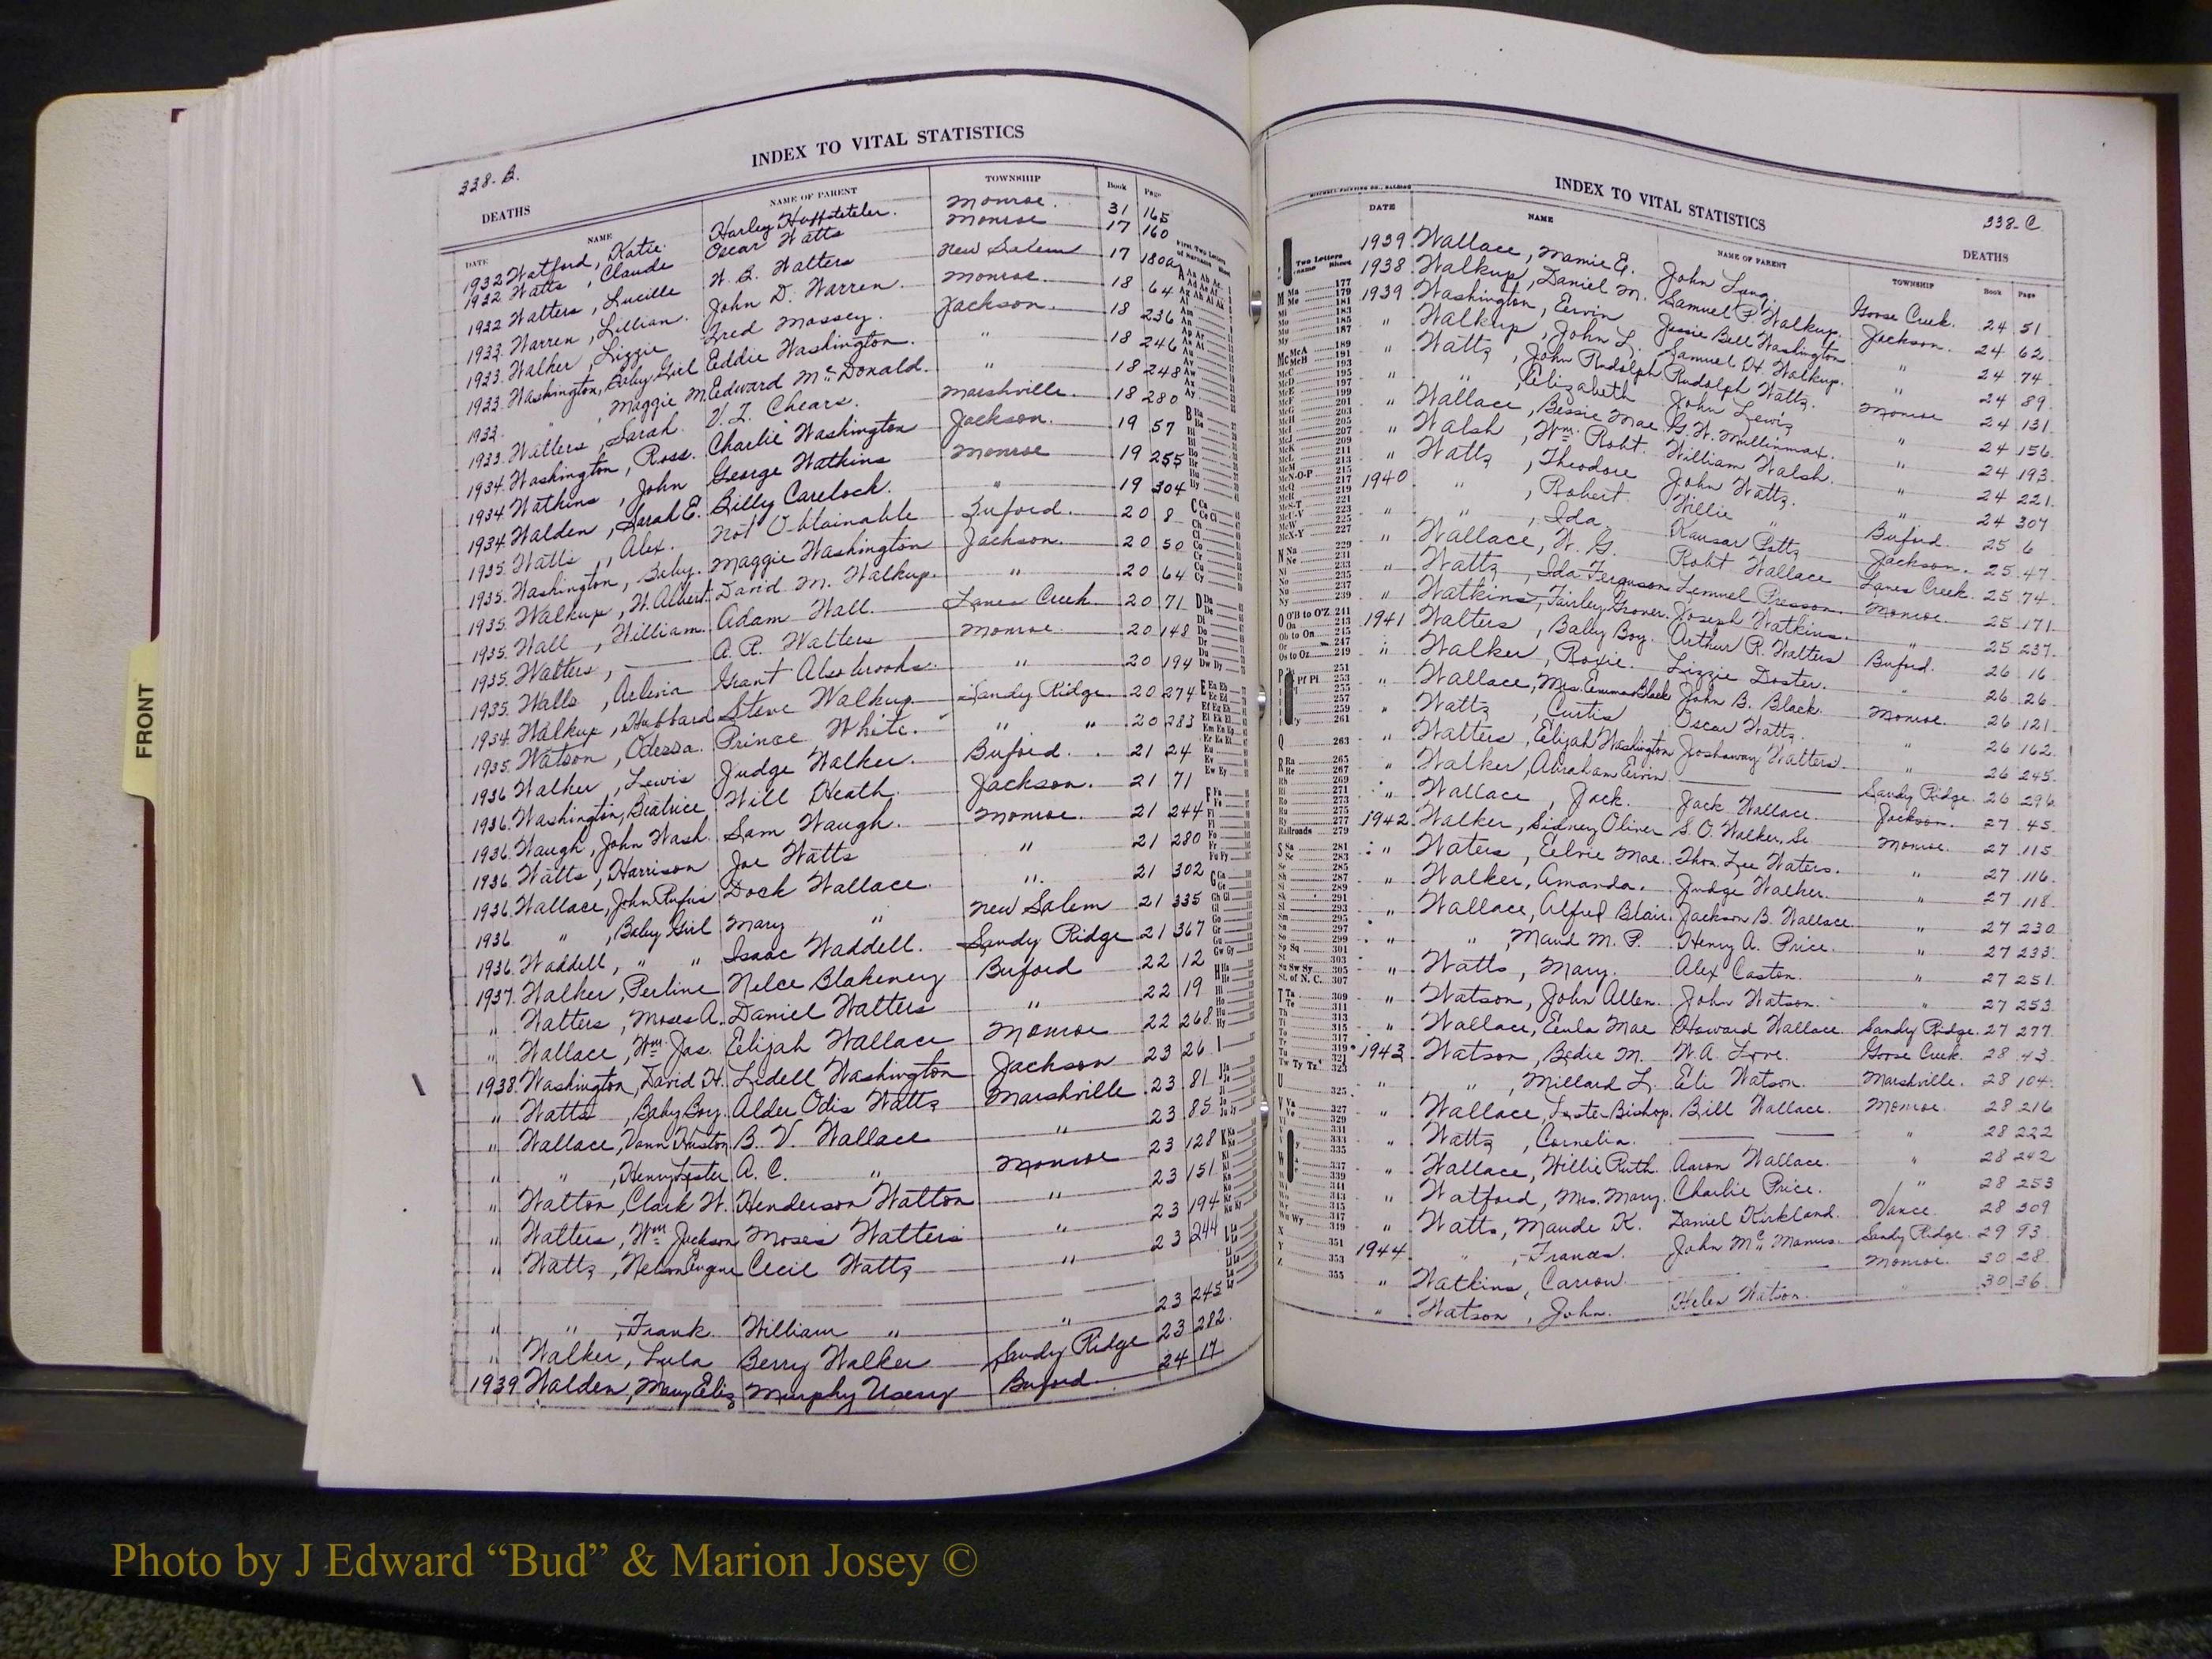 338-B.
INDEX TO VITAL STATISTICS
DEATHS
DATE NAME NAME OF PARENT TOWNSHIP Book Page
1932 Watford, Katie. Harley Huffstetler. Monroe. 31 165
1932 Watts, Claude Oscar Watts Monroe 17 160
1932 Walters, Lucille W. B. Walters New Salem 17 180a
1933. Warren, Lillian. John D. Warren. Monroe. 18 64
1933. Walker, Lizzie Fred Massey. Jackson. 18 236
1933. Washington, Baby Girl Eddie Washington. " 18 246
1933. " , Maggie M. Edward McDonald. " 18 248
1933. Walters, Sarah. V. T. Chears. Marshville. 18 280
1934. Washington, Ross. Charlie Washington Jackson. 19 57
1934. Watkins, John George Watkins Monroe 19 255
1934. Walden, Sarah E. Billy Carelock. " 19 304
1935. Watts, Alex. Not Obtainable Buford. 20 8
1935. Washington, Baby. Maggie Washington Jackson. 20 50
1935. Walkup, W. Albert. David M. Walkup. " 20 64
1935. Wall, William. Adam Wall. Lanes Creek 20 71
1935. Walters, A. R. Walters Monroe. 20 148
1935. Walls, Arlevia Grant Alsobrooks. " 20 194
1934. Walkup, Hubbard Steve Walkup Sandy Ridge. 20 274
1935. Watson, Odessa. Prince White. " " 20 283
1936 Walker, Lewis Judge Walker. Buford. 21 24
1936. Washington, Beatrice Will Heath. Jackson. 21 71
1936. Waugh, John Wash. Sam Waugh. Monroe. 21 244
1936. Watts, Harrison Joe Watts " 21 280
1936. Wallace, John Rufus Dock Wallace. " 21 302
1936. " , Baby Girl Mary " New Salem 21 335
1936. Waddell, " " Isaac Waddell. Sandy Ridge 21 367
1937. Walker, Perline Nelce Blakeney Buford 22 12
" Walters, Moses A. Daniel Walters " 22 19
" Wallace, Wm. Jas. Elijah Wallace Monroe 22 268
1938. Washington, David H. Ledell Washington Jackson 23 26
" Watts, Baby Boy. Alder Odis Watts Marshville 23 81
" Wallace, Vann Huston B. V. Wallace " 23 85
" " , Henry Lester A. C. " Monroe 23 128
" Watton, Clark W. Henderson Watton " 23 151
" Walters, Wm. Jackson Moses Walters " 23 194
" Watts, Nelson Eugene Cecil Watts " 23 244
" " , Frank William " " 23 245
" Walker, Lula Berry Walker Sandy Ridge 23 282
1939. Walden, Mary Eliz Murphy Usery Buford 24 17
INDEX TO VITAL STATISTICS
338-C
DEATHS
DATE NAME NAME OF PARENT TOWNSHIP Book Page
1939. Wallace, Mamie E. John Long. Goose Creek. 24 51
1938. Walkup, Daniel M. Samuel P. Walkup. Jackson. 24 62
1939. Washington, Ervin Jessie Bell Washington " 24 74
" Walkup, John L. Samuel H. Walkup. " 24 89
" Watts, John Rudolph Rudolph Watts. Monroe 24 131
" " , Elizabeth John Lewis " 24 156
" Wallace, Bessie Mae G. W. Mullinmax. " 24 193
" Walsh, Wm. Robt. William Walsh. " 24 221
" Watts, Theodore John Watts. " 24 307
1940 " , Robert. Willie " Buford. 25 6
" " , Ida. Kausar Potts Jackson. 25 47
" Wallace, W. G. Robt Wallace Lanes Creek. 25 74
" Watts, Ida Ferguson Lemuel Presson. Monroe. 25 171
" Watkins, Fairley Grover. Joseph Watkins. " 25 237
1941 Walters, Baby Boy. Arthur R. Walters Buford. 26 16
" Walker, Roxie. Lizzie Doster. " 26 26
" Wallace, Mrs. Emma Black John B. Black. Monroe. 26 121
" Watts, Curtis Oscar Watts. " 26 162
" Walters, Elijah Washington Joshaway Walters. " 26 245
" Walker, Abraham Ervin. Sandy Ridge. 26 296
" Wallace, Jack. Jack Wallace. Jackson. 27 45
1942. Walker, Sidney Oliver S. O. Walker, Sr. Monroe. 27 115
" Waters, Elvie Mae. Thos. Lee Waters. " 27 116
" Walker, Amanda. Judge Walker. " 27 118
" Wallace, Alfred Blair. Jackson B. Wallace. " 27 230
" " , Maud M. P. Henry A. Price. " 27 233
" Watts, Mary. Alex Caston. " 27 251
" Watson, John Allen. John Watson. " 27 253
" Wallace, Eula Mae Howard Wallace. Sandy Ridge. 27 277
1943. Watson, Bedie M. W. A. Love. Goose Creek. 28 43
" " , Millard L. Eli Watson. Marshville. 28 104
" Wallace, Lester Bishop. Bill Wallace. Monroe. 28 216
" Watts, Cornelia. " 28 222
" Wallace, Willie Ruth. Aaron Wallace. " 28 242
" Watford, Mrs. Mary. Charlie Price. " 28 253
" Watts, Maude K. Daniel Kirkland. Vance. 28 309
1944 " , Frances. John McManus. Sandy Ridge. 29 93
" Watkins, Carrow. Monroe. 30 28
" Watson, John. Helen Watson. 30 36
FRONT
Photo by J Edward “Bud” & Marion Josey ©